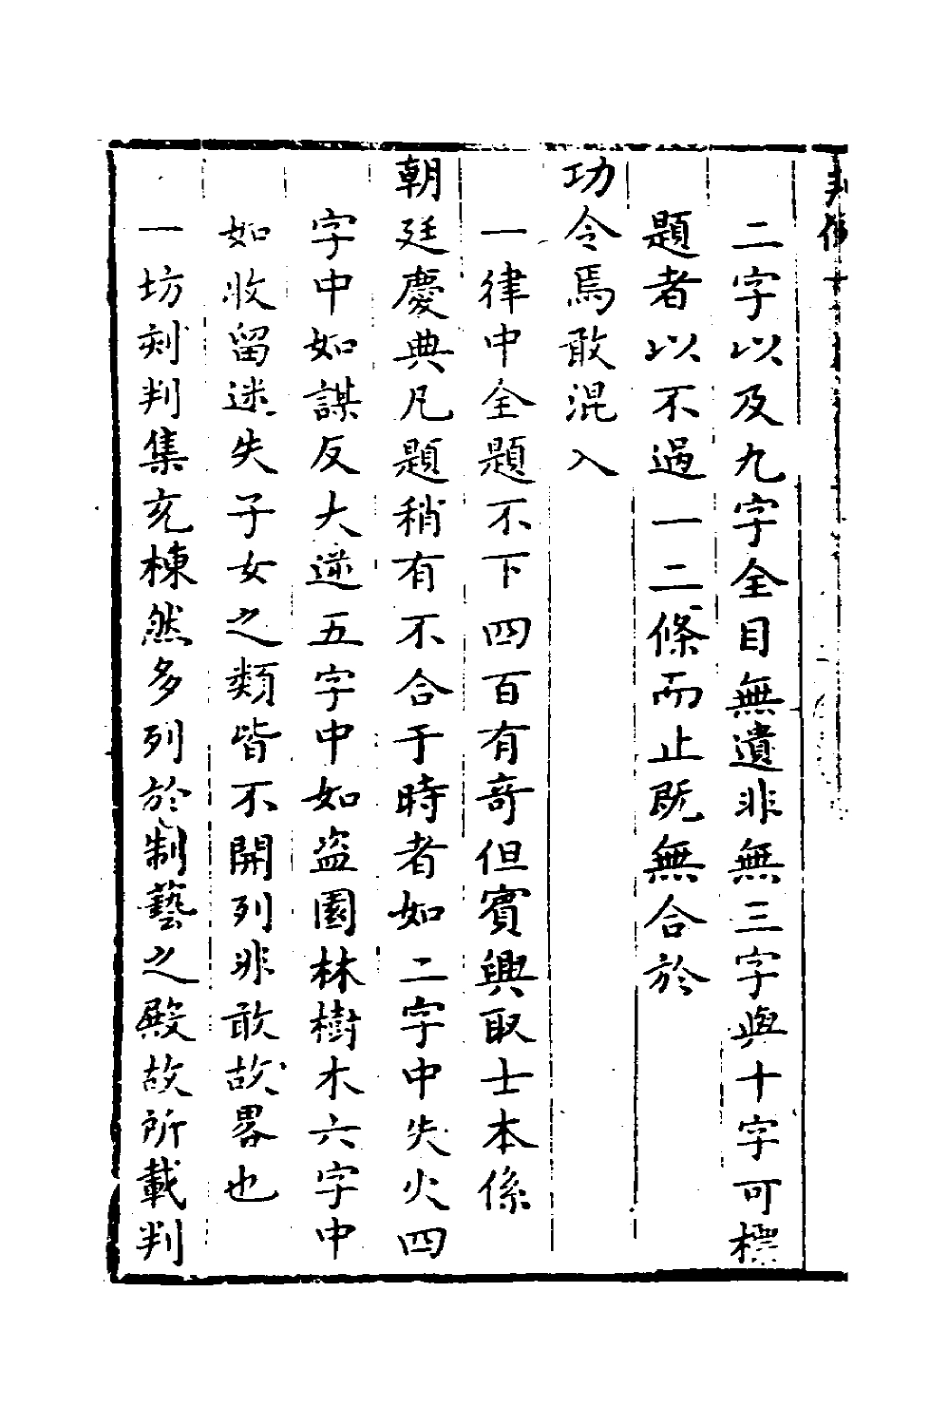 二字以及九字全目無遺非無三字與十字可標
題者以不過一二條而止既無合於
功令焉敢混入
一律中全題不下四百有奇但賓興取士本係
朝廷慶典凡題稍有不合于時者如二字中失火四
字中如謀反大逆五字中如盜園林樹木六字中
如收留迷失子女之類皆不開列非敢故畧也
一坊刻判集充棟然多列於制藝之殿故所載判